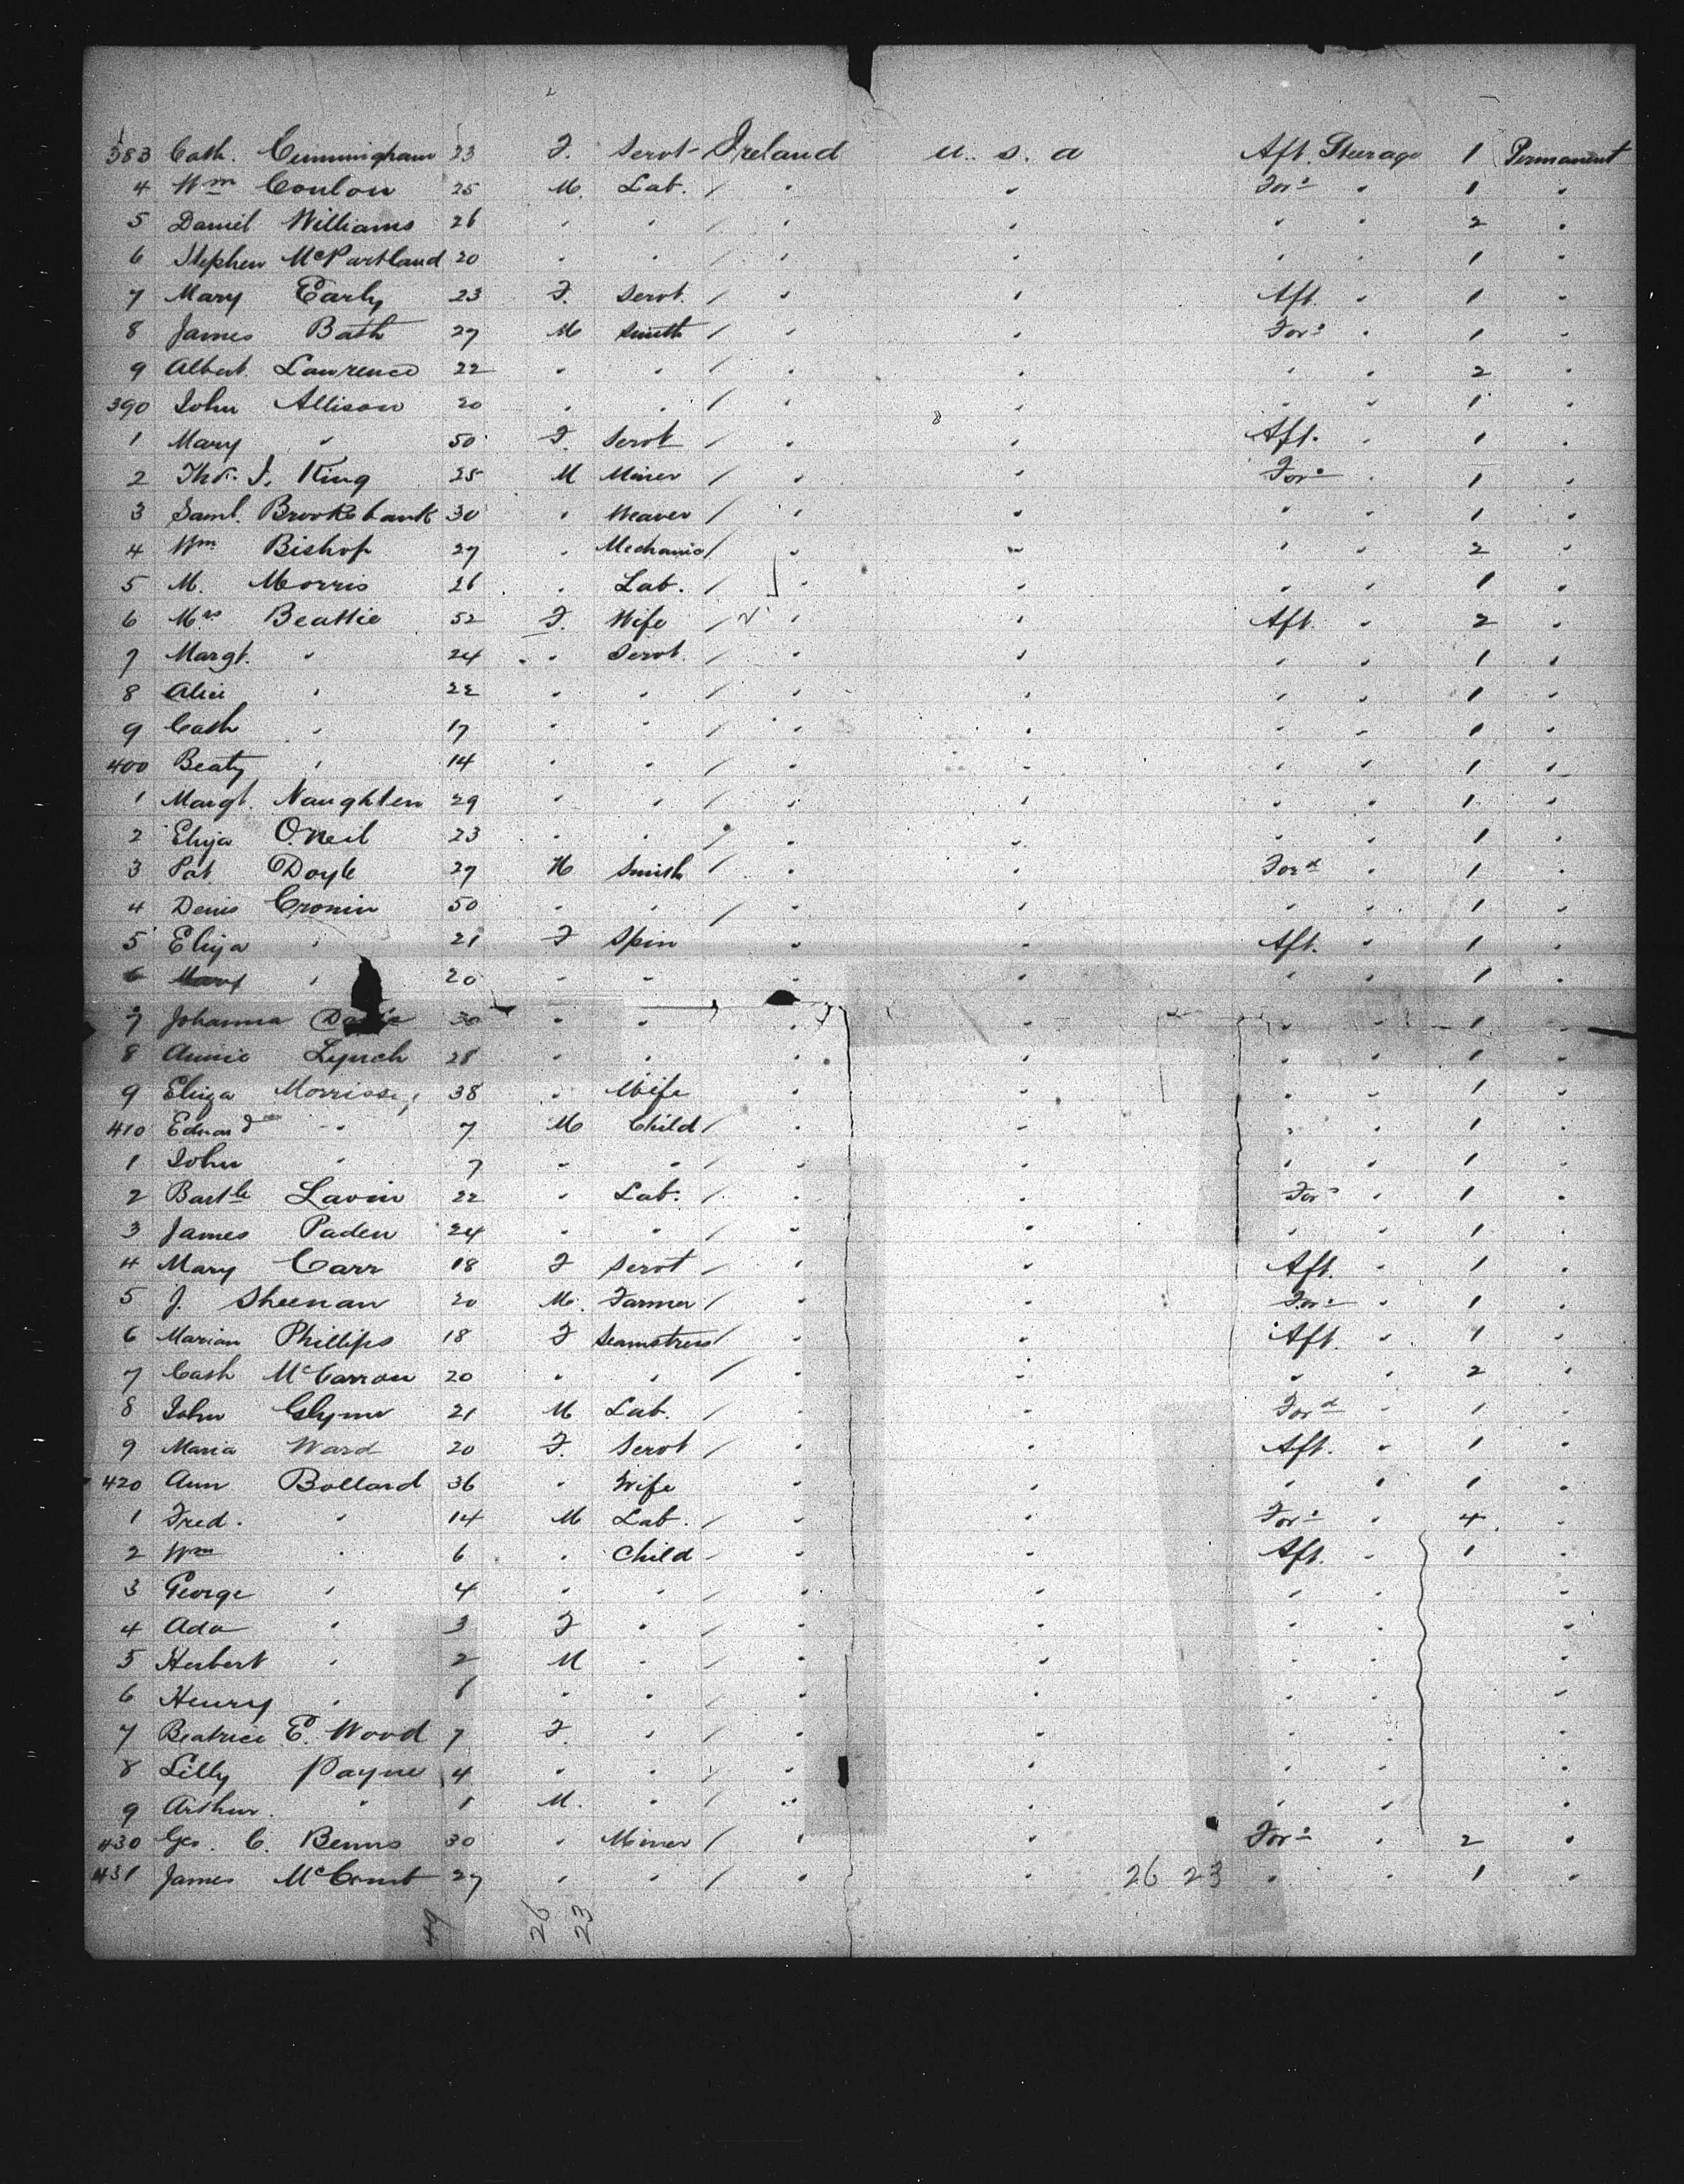 383 Cath. Cunningham 23 F. Servt Ireland U. S. A Aft. Steerage 1 Permanent
4 Wm Conlon 25 M. Lab. / " " For^d " 1 "
5 Daniel Williams 26 " " / " " " " 2 "
6 Stephen McPartland 20 " " / " " " " 1 "
7 Mary Early 23 F. Servt. / " " Aft. " 1 "
8 James Bath 27 M Smith / " " For^d " 1 "
9 Albert Lawrence 22 " " / " " " " 2 "
390 John Allison 20 " " / " " " " 1 "
1 Mary " 50 F Servt / " " Aft. " 1 "
2 Thos. J. King 25 M Miner / " " For^d " 1 "
3 Saml. Brooksbank 30 " Weaver / " " " " 1 "
4 Wm Bishop 27 " Mechanic / " " " " 2 "
5 M. Morris 26 " Lab. / " " " " 1 "
6 Mrs Beattie 52 F. Wife / " " Aft. " 2 "
7 Margt. " 24 " Servt. / " " " " 1 "
8 Alice " 22 " " / " " " " 1 "
9 Cath " 17 " " / " " " " 1 "
400 Beaty " 14 " " / " " " " 1 "
1 Margt. Naughten 29 " " / " " " " 1 "
2 Eliza O.Neil 23 " " / " " " " 1 "
3 Pat. Doyle 27 M Smith / " " For^d " 1 "
4 Denis Cronin 50 " " / " " " " 1 "
5 Eliza " 21 F Spin " " Aft. " 1 "
6 Mary " 20 " " " " " " 1 "
7 Johanna 30 " " " " " " 1 "
8 Annie Lynch 28 " " " " " " 1 "
9 Eliza Morrissey 38 " Wife " " " " 1 "
410 Edward " 7 M Child / " " " " 1 "
1 John " 7 " " / " " " " 1 "
2 Bartle Lavin 22 " Lab. / " " For^d " 1 "
3 James Paden 24 " " / " " " " 1 "
4 Mary Carr 18 F Servt / " " Aft. " 1 "
5 J. Sheenan 20 M. Farmer / " " For^d " 1 "
6 Marian Phillips 18 F Seamstress / " " Aft. " 1 "
7 Cath McCarron 20 " " / " " " " 2 "
8 John Glynn 21 M Lab. / " " For^d " 1 "
9 Maria Ward 20 F. Servt / " " Aft. " 1 "
420 Ann Bollard 36 " Wife " " " " 1 "
1 Fred. " 14 M Lab. / " " For^d " 4 "
2 Wm " 6 " Child / " " Aft. " 1 "
3 George " 4 " " / " " " " "
4 Ada " 3 F " / " " " " "
5 Herbert " 2 M " / " " " " "
6 Henry " 1 " " / " " " " "
7 Beatrice E. Wood 7 F. " / " " " " "
8 Lilly Payne 4 " " / " " " " "
9 Arthur. " 1 M. " / " " " " "
430 Geo. C. Benns 30 " Miner / " " For^d " 2 "
431 James 27 " " / " " 26 23 " " 1 "
49 26 23